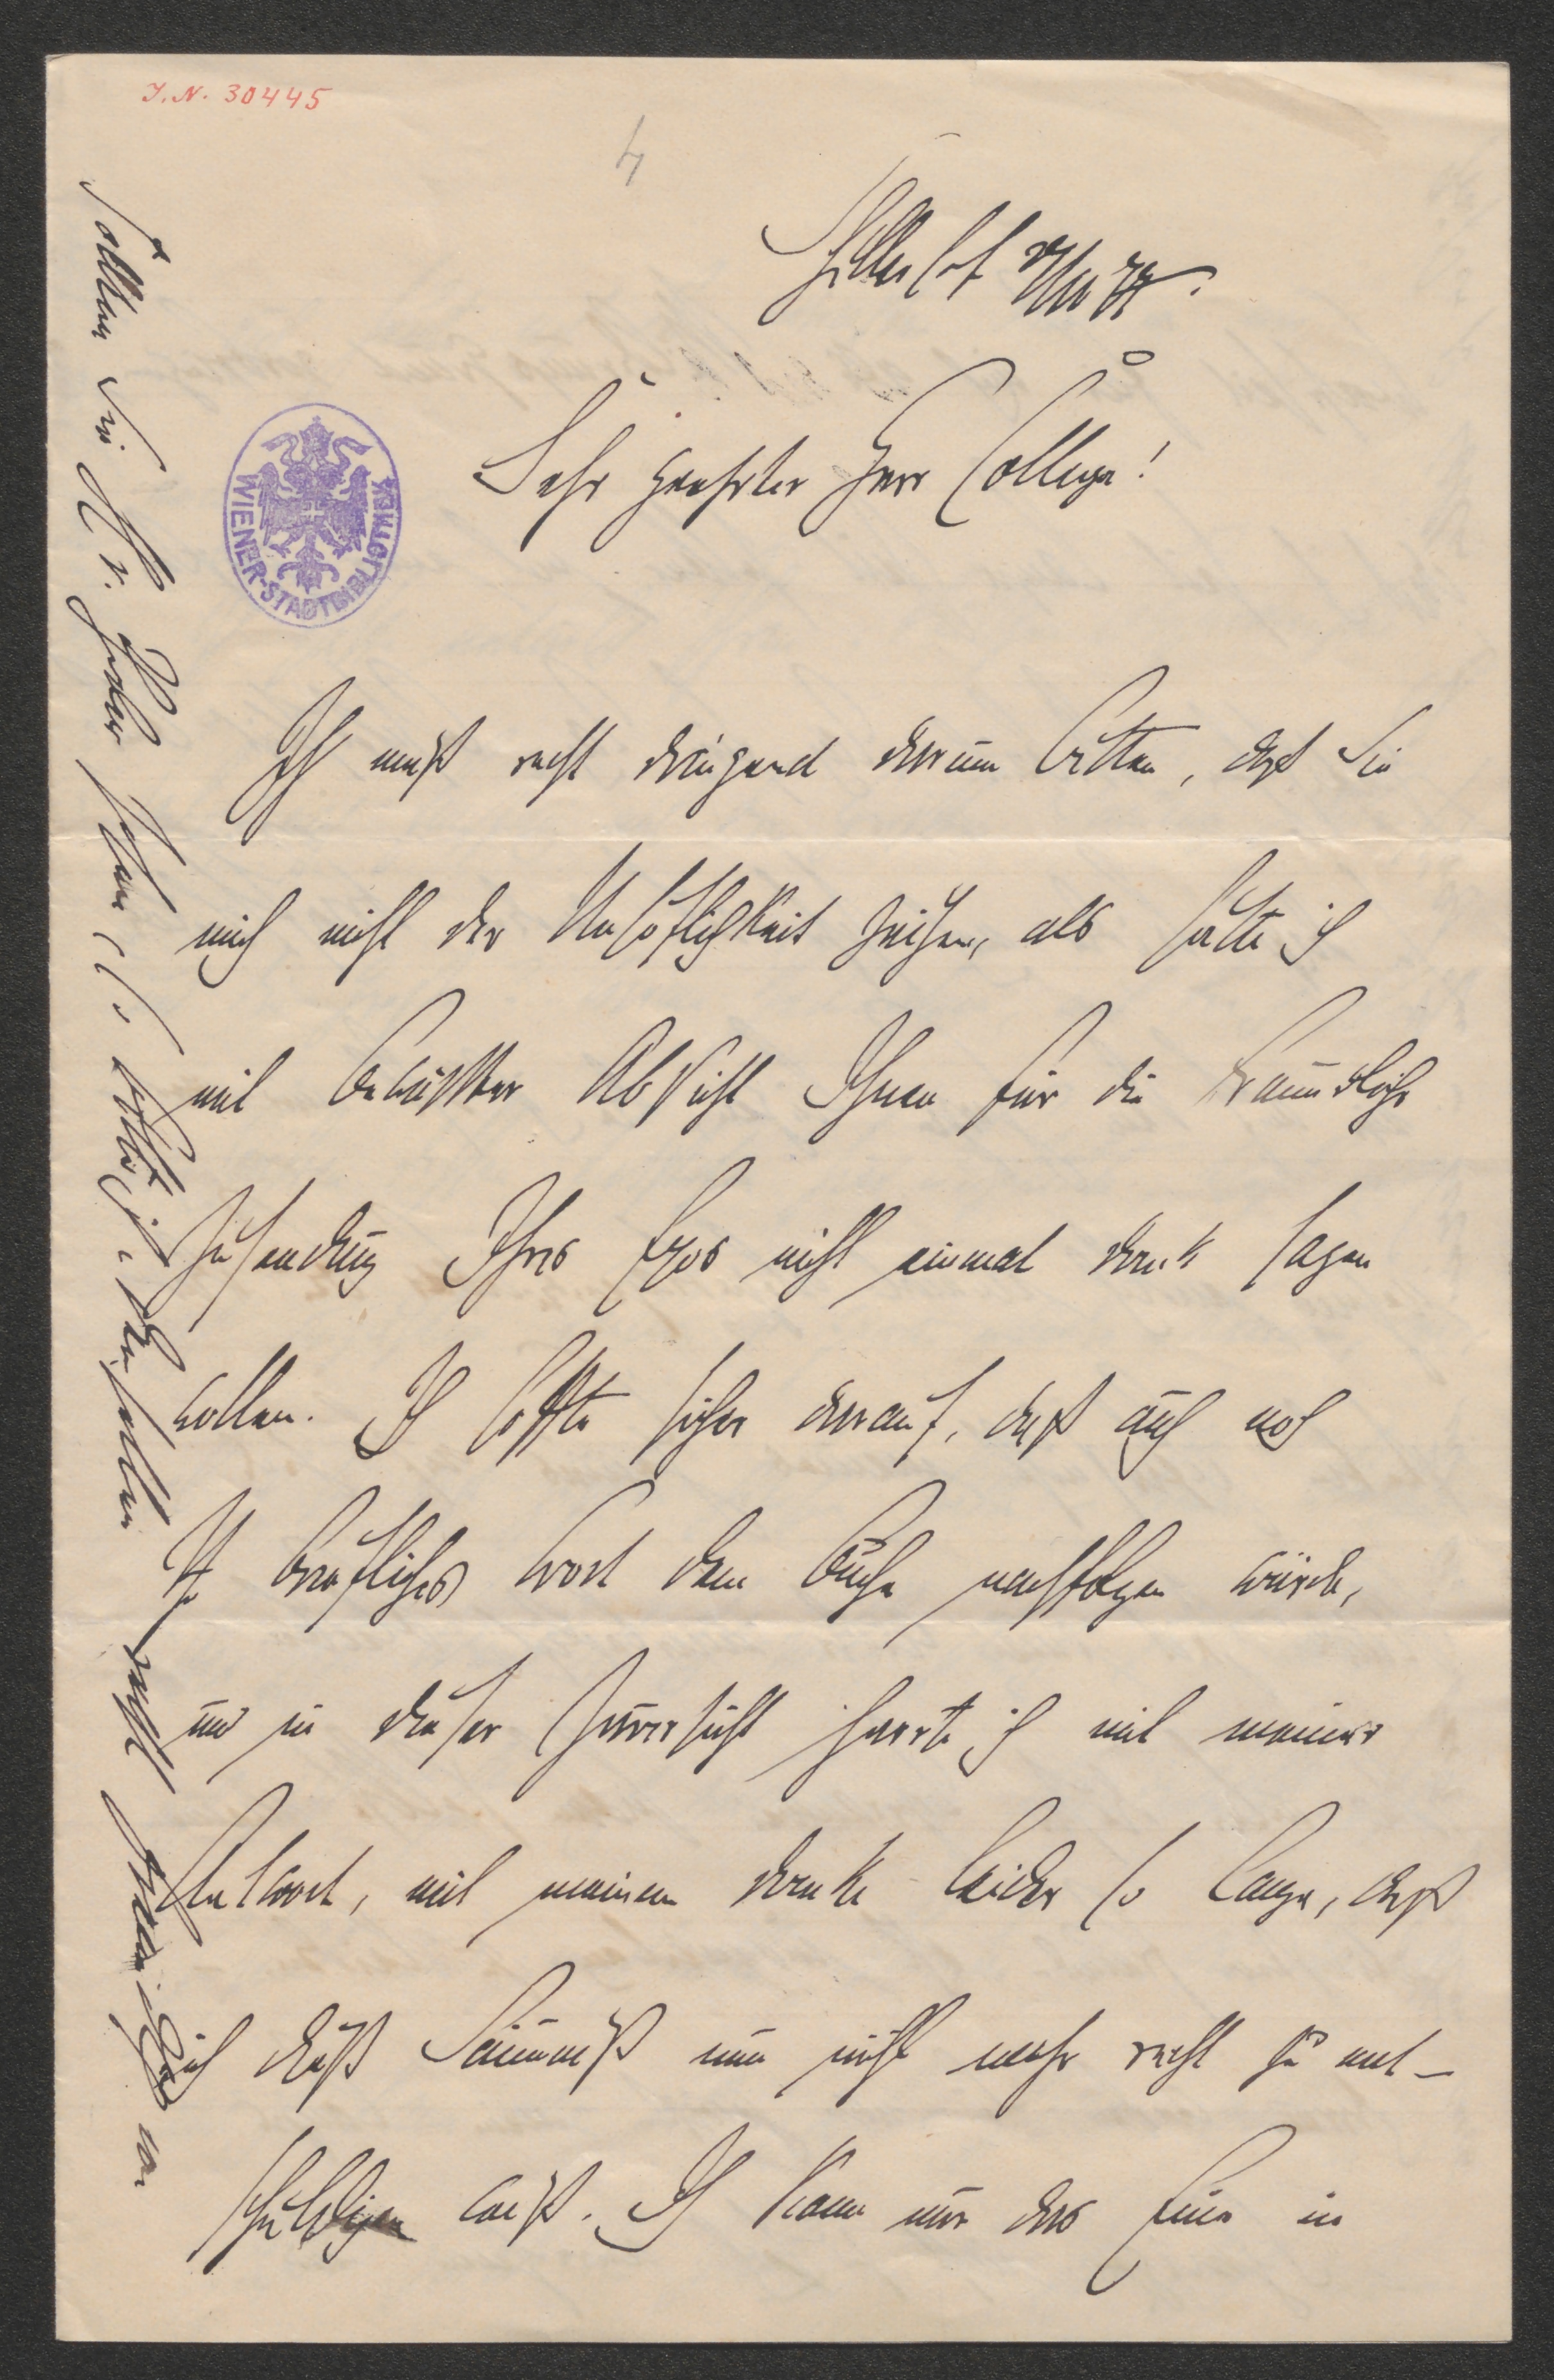 I.N. 30445
4
Sehr geehrter Herr College!
WIENER-STADTBIBLIOTHEK
Ich muß recht dringend darum bitten, daß Sie
mich nicht der Unhöflichkeit zeihen, als hätte ich
mit bewußter Absicht Ihnen für die freundliche
Zusendung Ihres Epos nicht einmal Dank sagen
wollen. Ich hoffte sicher darauf, daß auch noch
Ihr briefliches Wort dem Buche nachfolgen würde,
und in dieser Zuversicht harrte ich mit meiner
Antwort, mit meinem Danke leider so lange, daß
ich dieß Säumniß nun nicht mehr recht zu ent-
schuldigen weiß. Ich kann nur das Eine in
Sollten Sie Hr. sehen, so bitte ich, denselben recht